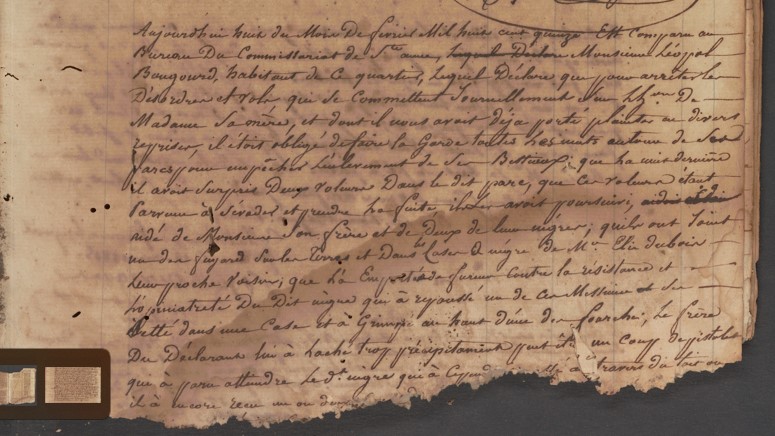 Aujourd'hui huit du Mois De fevrier Mil huit cent quinze Est Comparu au
Bureau Du Commissariat de Ste anne, lequel Déclare Monsieur Léopol
Bougourd, habitant de Ce quartier, Lequel Déclare que pour arrêter le
Désordre et vols, qui se Committent Journellement Sur De
Madame Sa mère, et dont il nous avoit déja porté plaintes a divers
reprises, il étoit obligé de faire la Garde toutes les nuits autour de Ses
Parcs pour empêcher l'enlevement de Ses Bestiaux; que la nuit derniere
il avoit surpris Deux voleurs Dans le dit parc, que Ces voleurs étant
Parvenu à S'évader et prendre la fuite il les avoit poursuivi,
aidé de Monsieur Son frère et de Deux de leur nègres; qu'ils ont Joint
un des fuyard Sur les Terres et Dans les Cases à nègre de Mr. Elie dubois
Leur proche Voisin; que là Emporté de fureur Contre la résistance et
L'opiniatreté Du Dit nègre qui à repoussé un de Ces Messieurs et Se
Jetté dans une Case et à Grimpé au haut d'une des fourche; Le frère
Du Déclarant lui à laché trop précipitament un coup de pistolet
que à paru atteindre le dt. nègre qui à travers du toit ou
il à encore reçu un ou